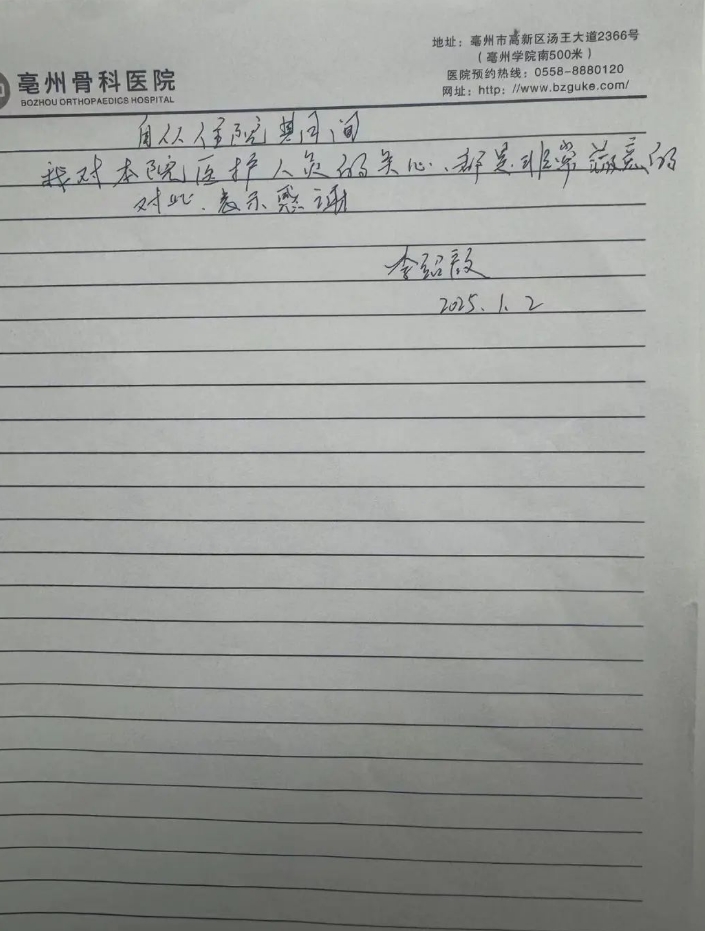 亳州骨科医院
BOZHOU ORTHOPAEDICS HOSPITAL
地址：亳州市高新区汤王大道2366号
（亳州学院南500米）
医院预约热线：0558-8880120
网址：http：//www.bzguke.com/
自从住院其间
我对本院医护人员的关心、都是非常满意的
对此、表示感谢
李绍
2025.1.2